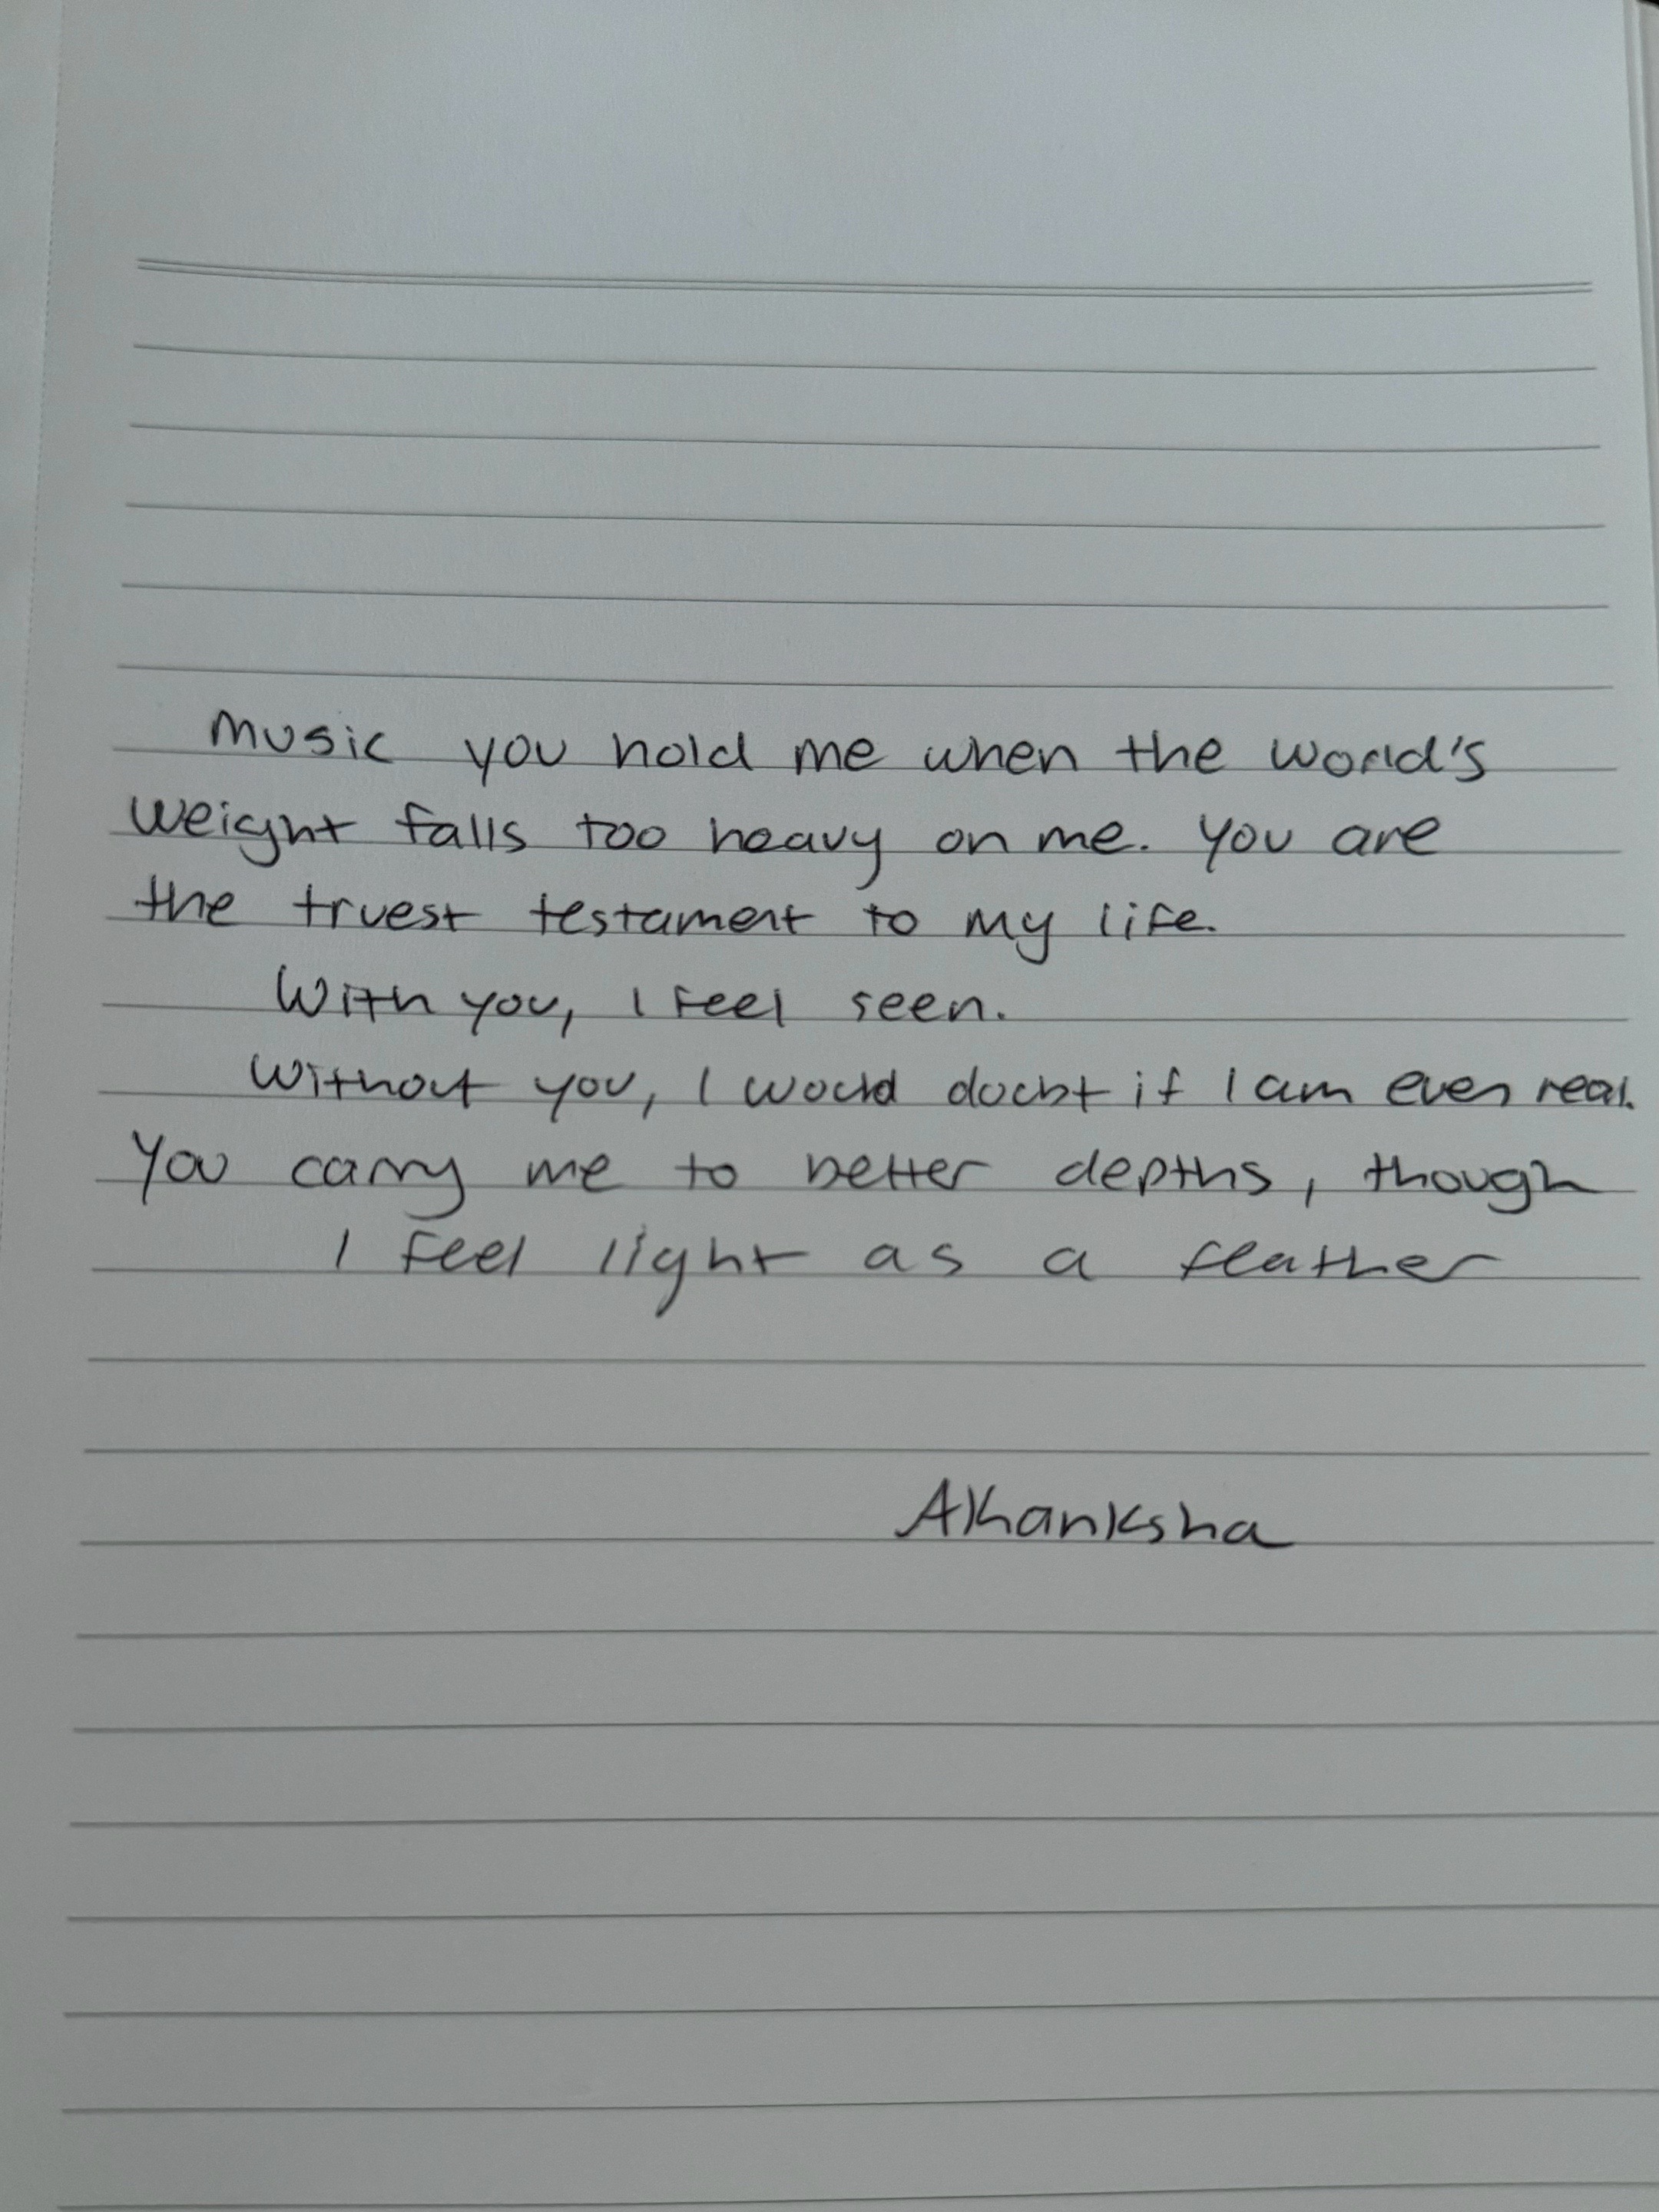 Music you hold me when the world's
weight falls too heavy on me. You are
the truest testament to my life.
With you, I feel seen.
Without you, I would doubt if I am even real.
You carry me to better depths, though
I feel light as a feather
Akanksha